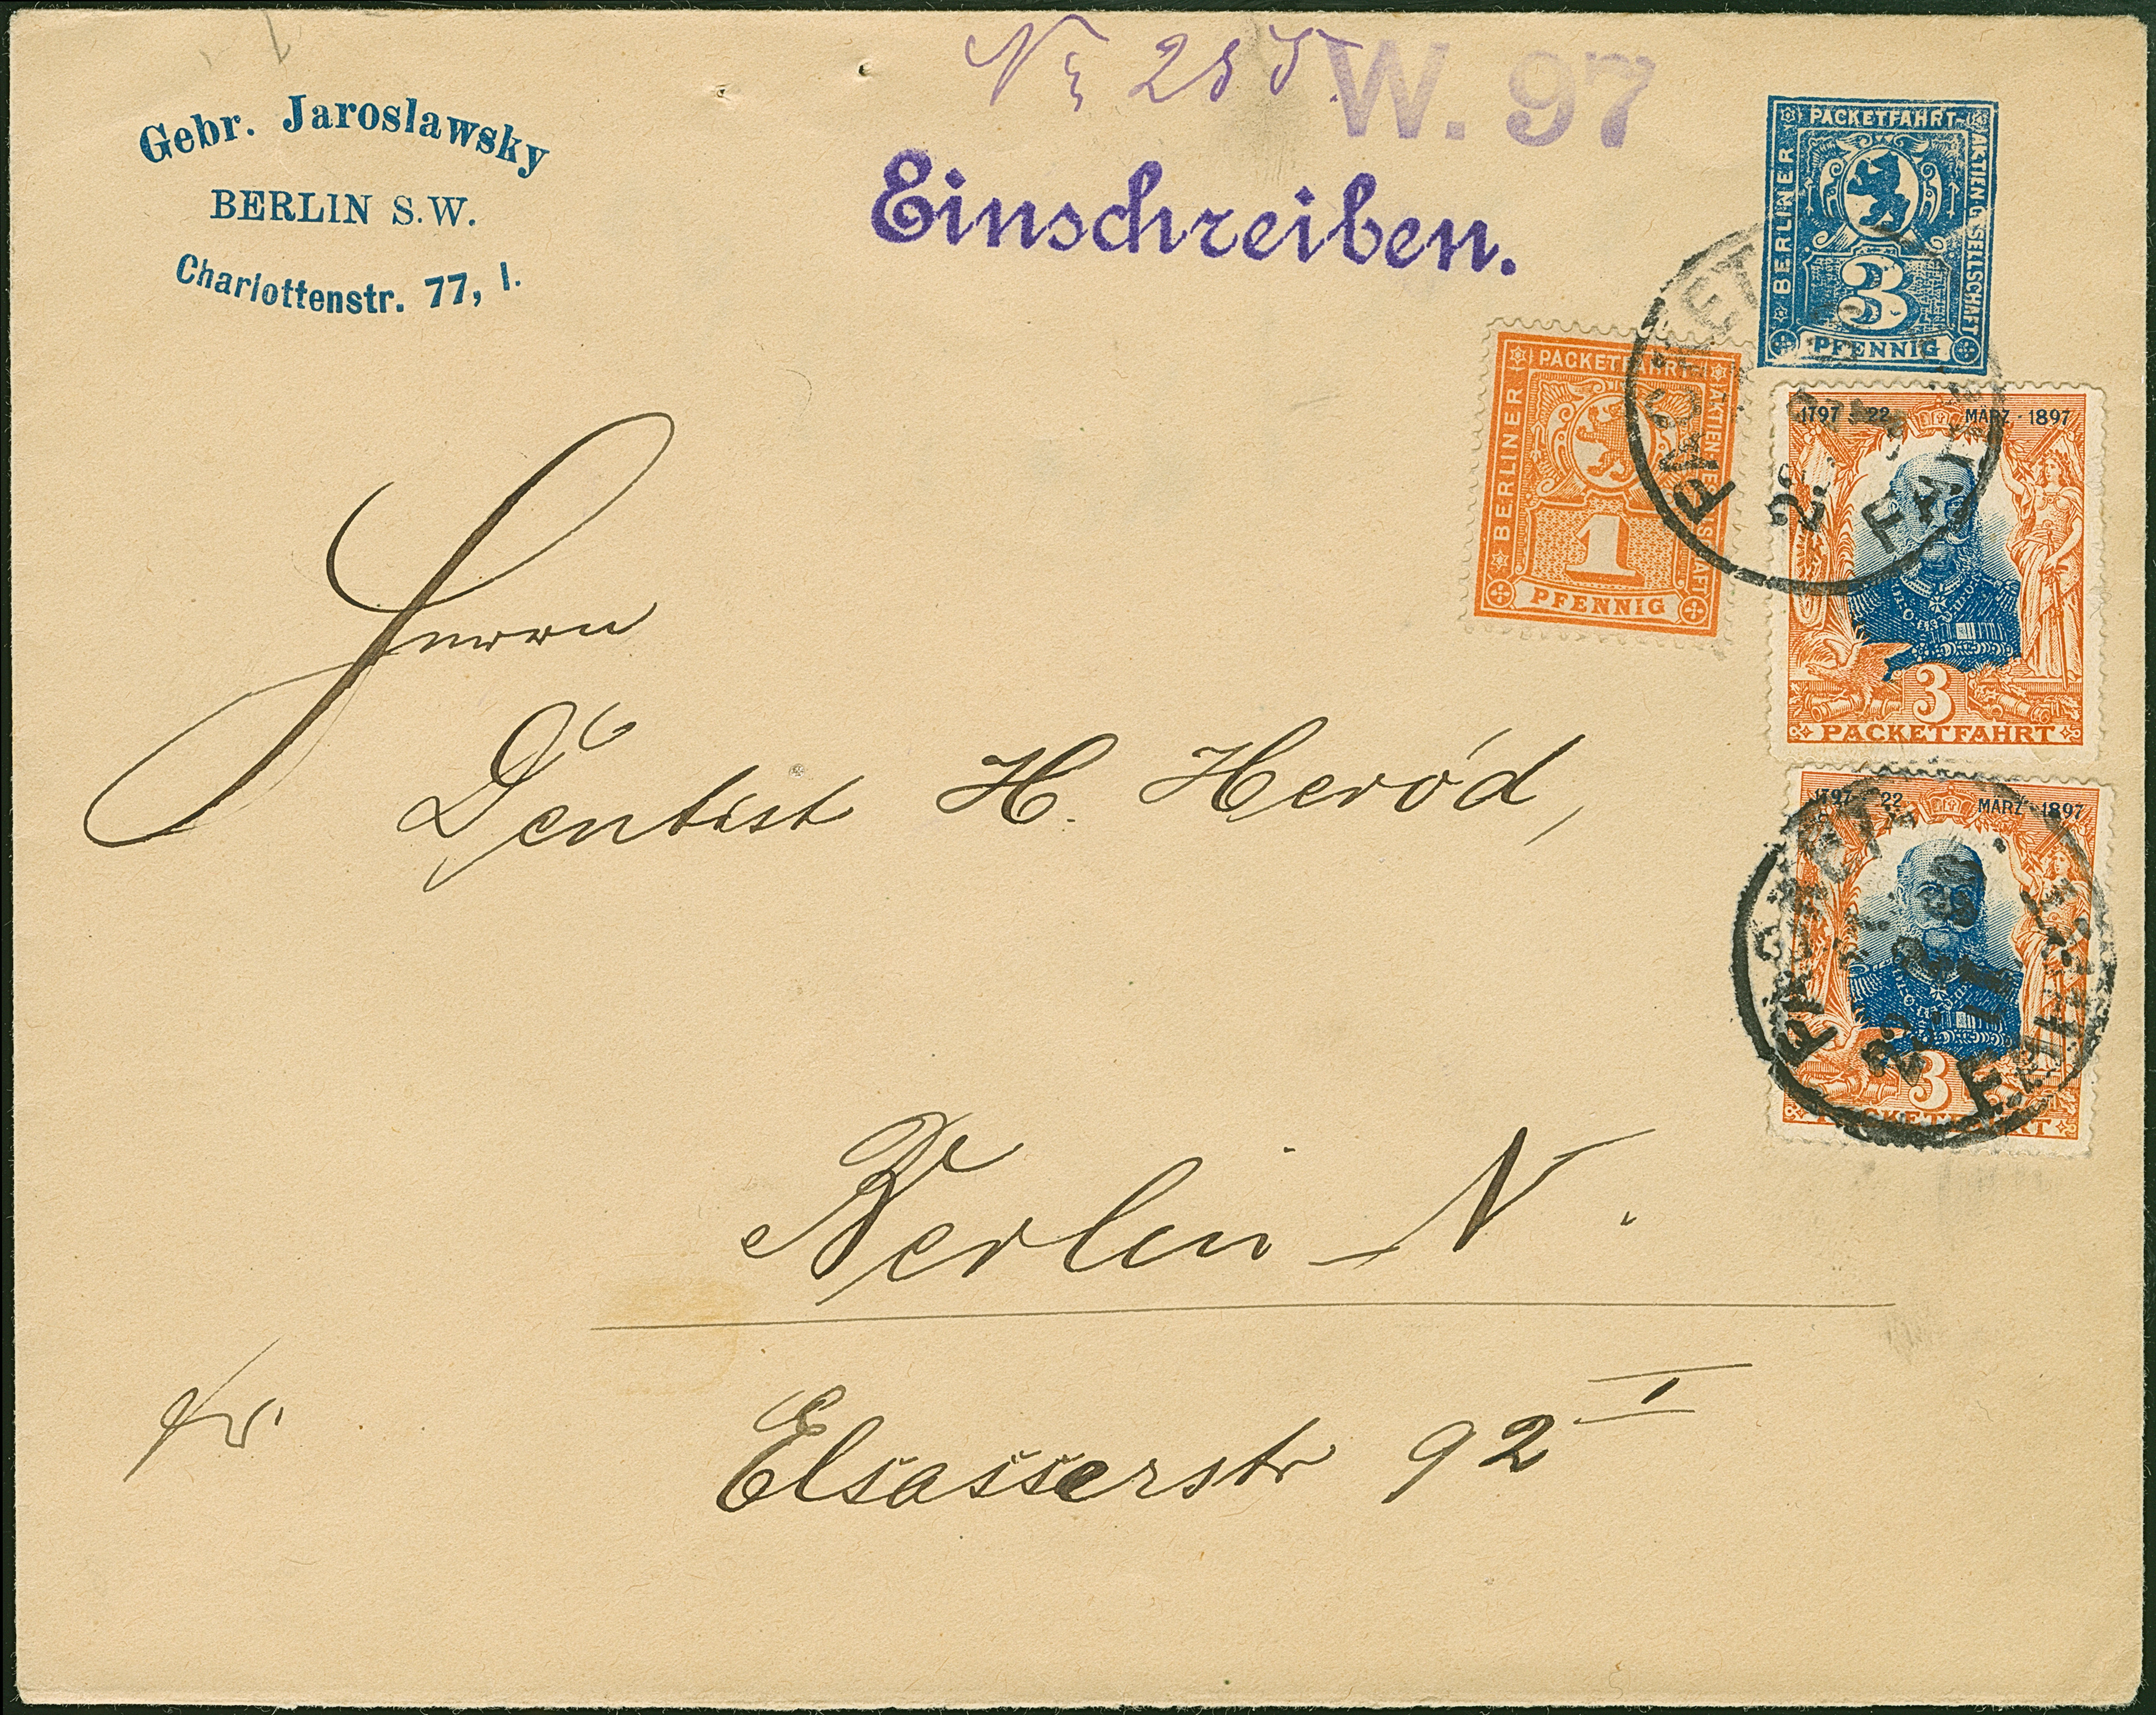 Gebr. Jaroslawsky
BERLIN S.W.
Charlottenstr. 77, I.
W. 97
Einschreiben.
BERLINER PACKETFAHRT-AKTIEN-GESELLSCHAFT
3
PFENNIG
BERLINER PACKETFAHRT-AKTIEN-GESELLSCHAFT
1
PFENNIG
1797 22 MÄRZ - 1897
3
PACKETFAHRT
1797 22 MÄRZ - 1897
3
PACKETFAHRT
PACKET
FAHRT
Herrn
Dentist H. Heród,
Berlin N.
fr
Elsasserstr 92 I